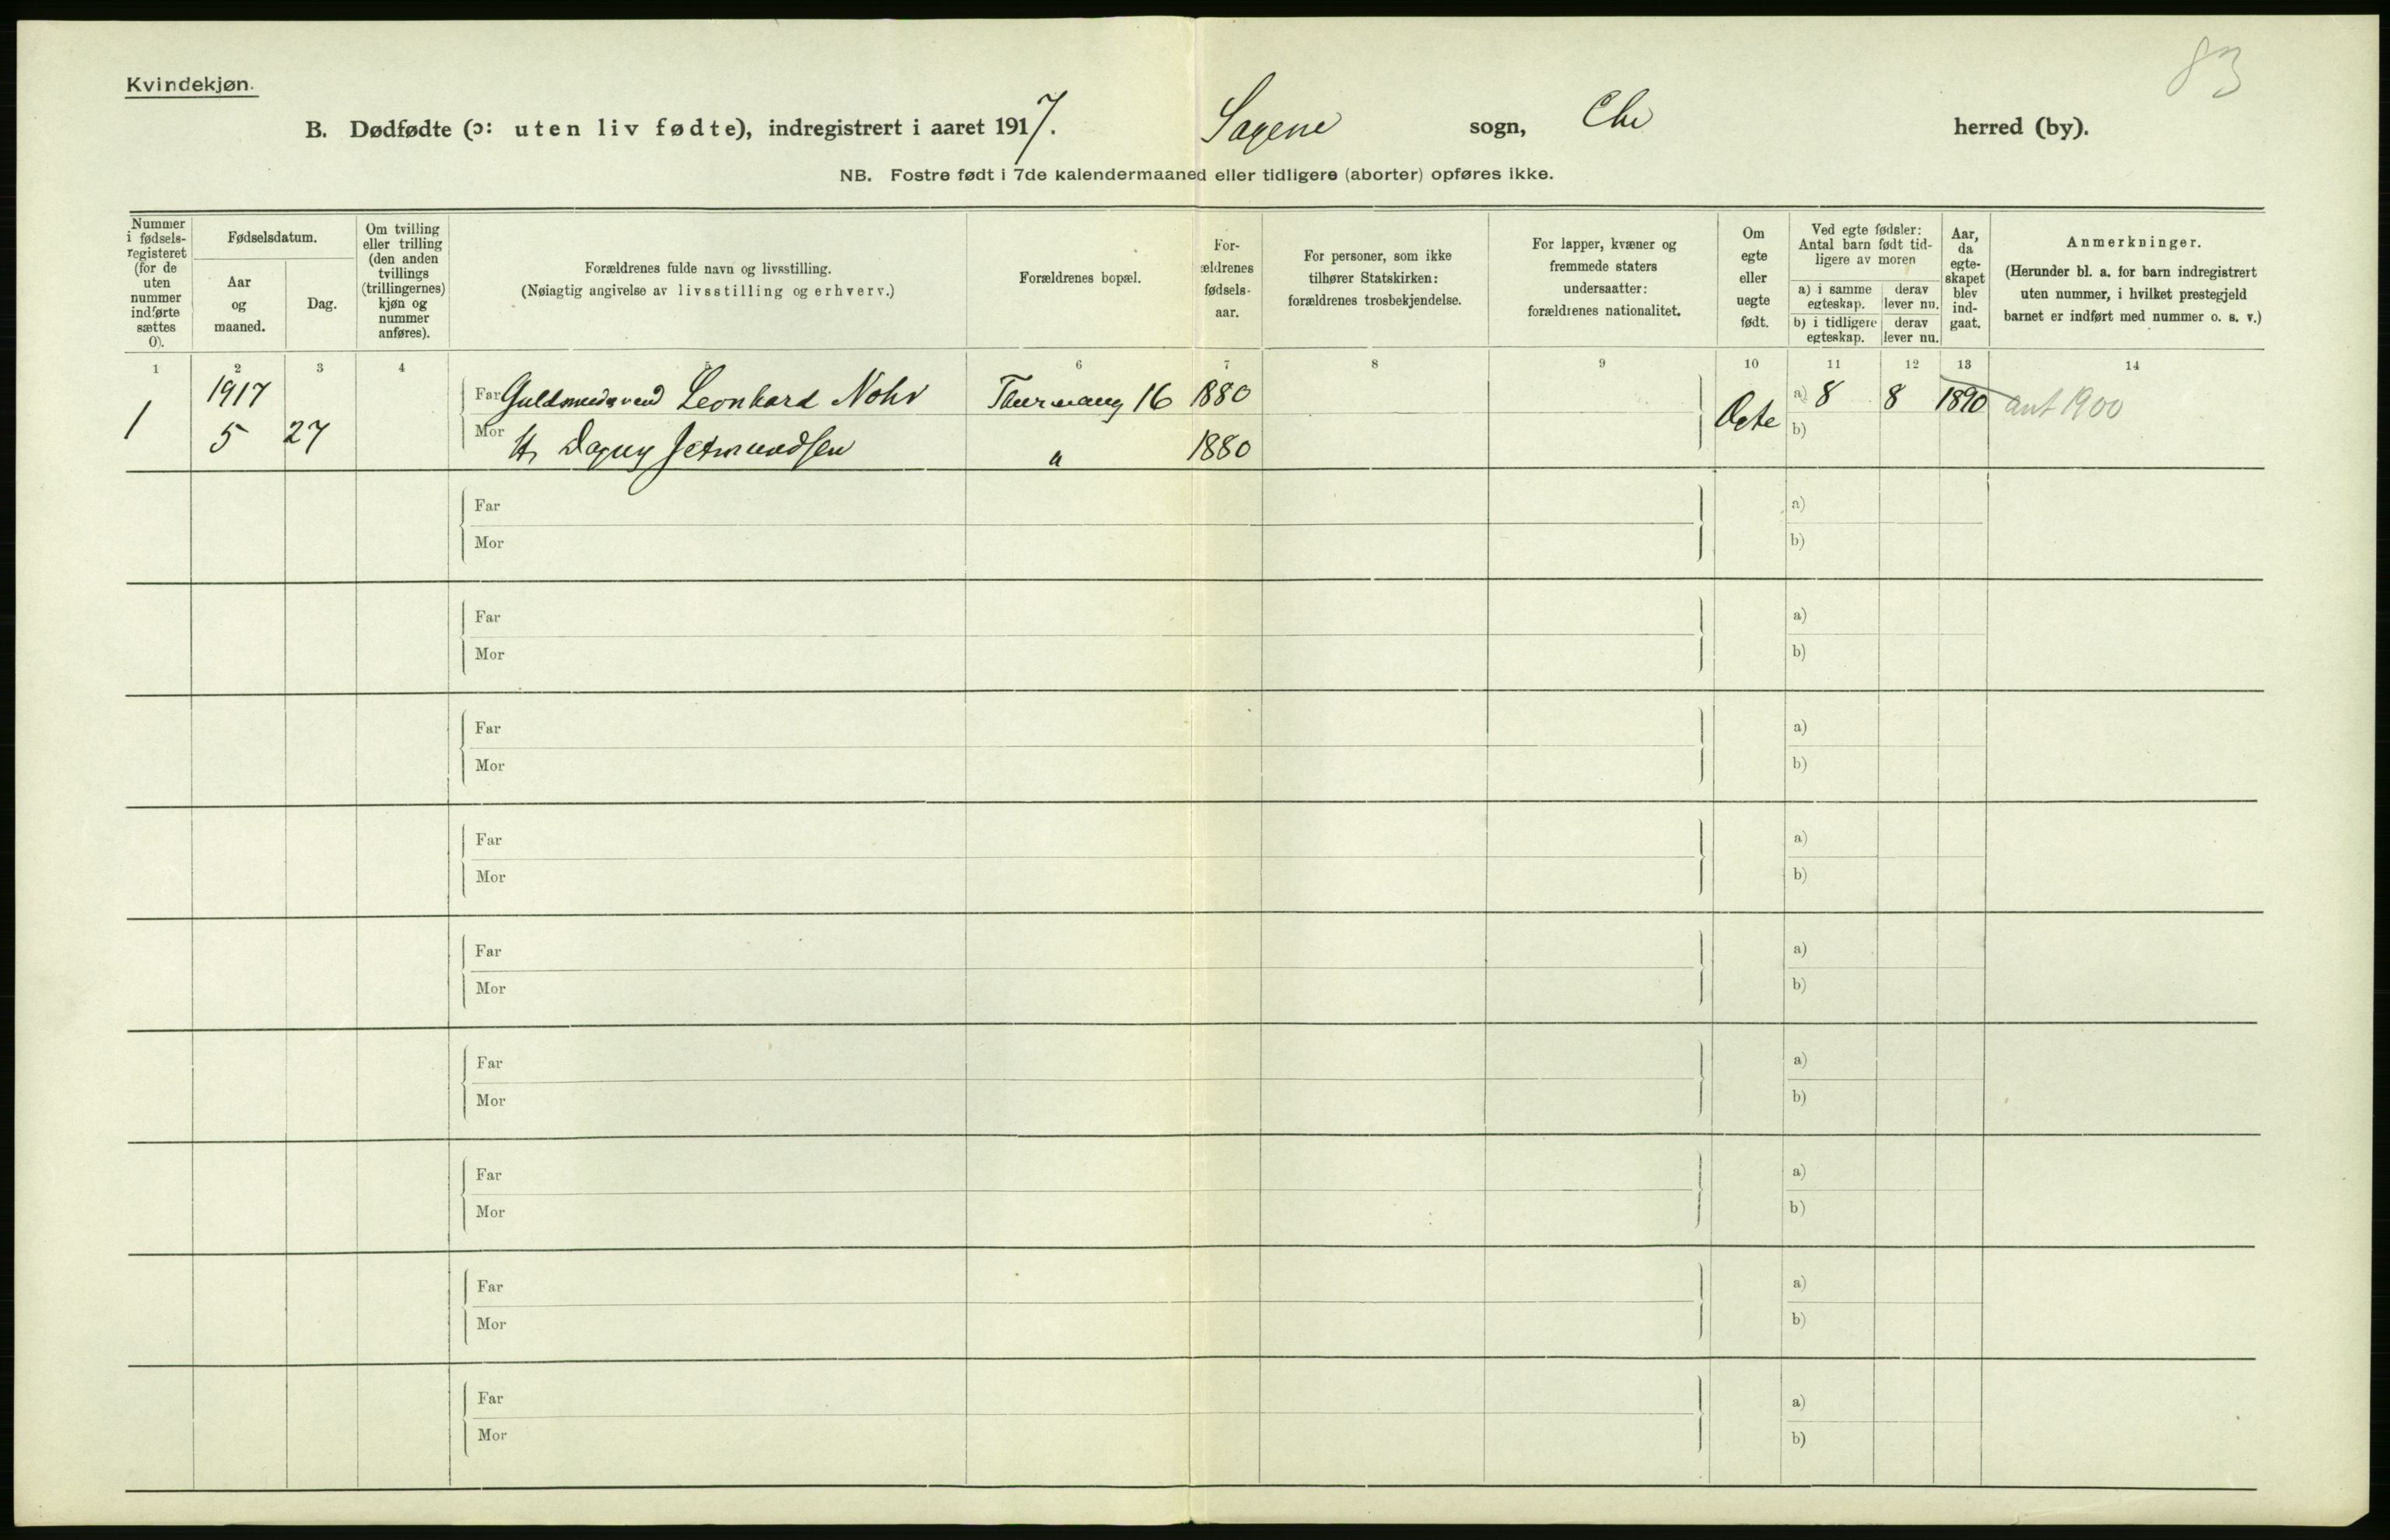 83
Kvindekjøn.
B. Dødfødte (ɔ: uten liv fødte), indregistrert i aaret 1917. Sagene sogn, Chr herred (by).
NB. Fostre født i 7de kalendermaaned eller tidligere (aborter) opføres ikke.
Nummer i fødsels-registeret (for de uten nummer indførte sættes 0).
Fødselsdatum.
Aar og maaned.
Dag.
Om tvilling eller trilling (den anden tvillings (trillingernes) kjøn og nummer anføres).
Forældrenes fulde navn og livsstilling.
(Nøiagtig angivelse av livsstilling og erhverv.)
Forældrenes bopæl.
For-ældrenes fødsels-aar.
For personer, som ikke tilhører Statskirken: forældrenes trosbekjendelse.
For lapper, kvæner og fremmede staters undersaatter: forældrenes nationalitet.
Om egte eller uegte født.
Ved egte fødsler: Antal barn født tid-ligere av moren
a) i samme egteskap.
derav lever nu.
b) i tidligere egteskap.
derav lever nu.
Aar, da egte-skapet blev ind-gaat.
Anmerkninger.
(Herunder bl. a. for barn indregistrert uten nummer, i hvilket prestegjeld barnet er indført med nummer o. s. v.)
1 2 3 4 5 6 7 8 9 10 11 12 13 14
1 1917 5 27
Far Guldsmedsvend Leonhard Nohr 16 1880
Mor Dagny 1880
Egte a) 8 8 1890 ant 1900
b)
Far a)
Mor b)
Far a)
Mor b)
Far a)
Mor b)
Far a)
Mor b)
Far a)
Mor b)
Far a)
Mor b)
Far a)
Mor b)
Far a)
Mor b)
Far a)
Mor b)